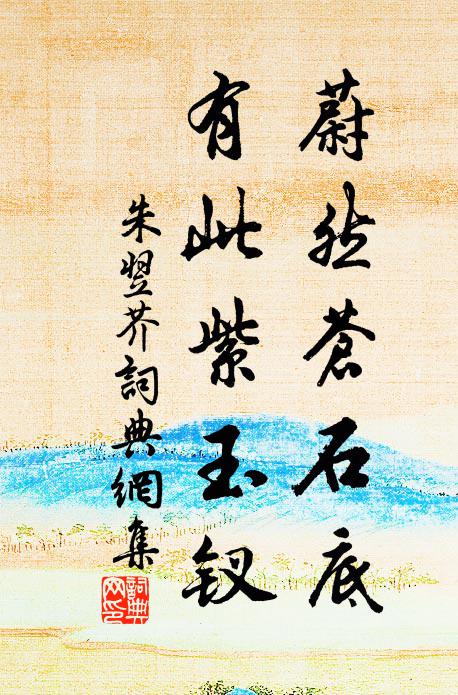 蔚然蒼石底
有此紫玉釵
朱翌芥詞典網集
詞典網印